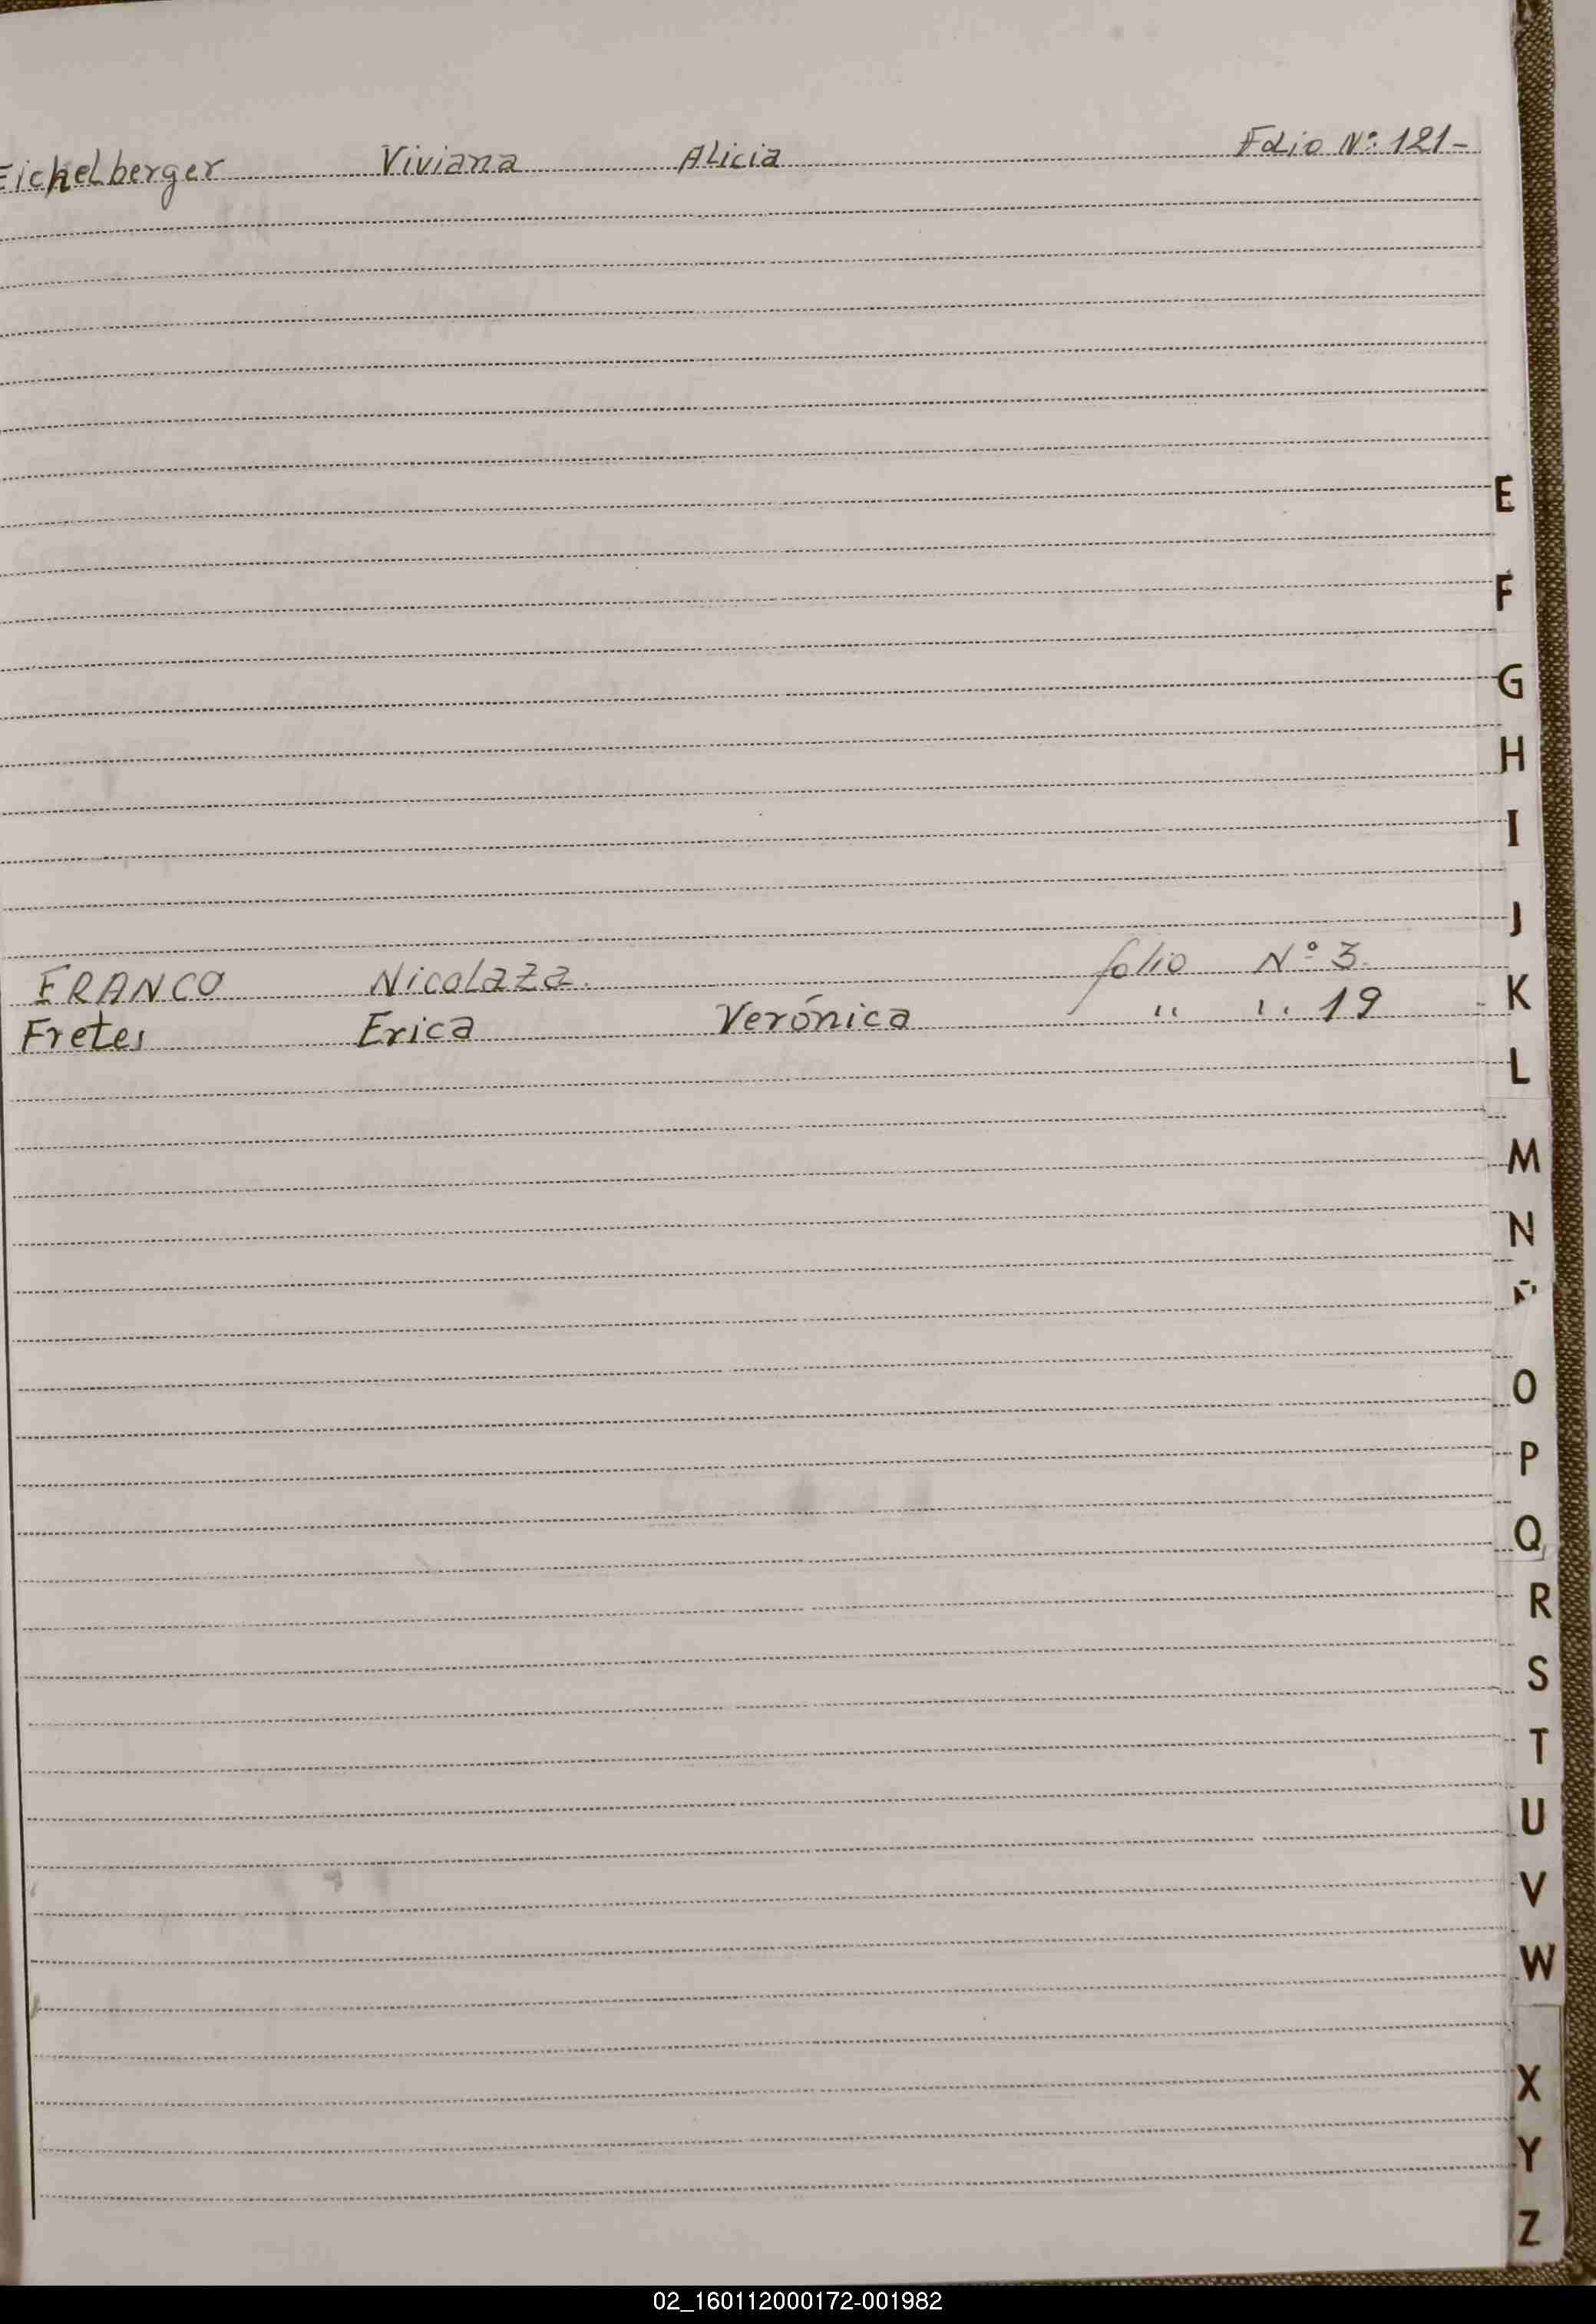 Eichelberger Viviana Alicia Folio Nº: 121-
E
F
G
H
I
J
FRANCO Nicolaza. folio Nº 3.
K
Fretes Erica Verónica " " 19
L
M
N
Ñ
O
P
Q
R
S
T
U
V
W
X
Y
Z
02_160112000172-001982